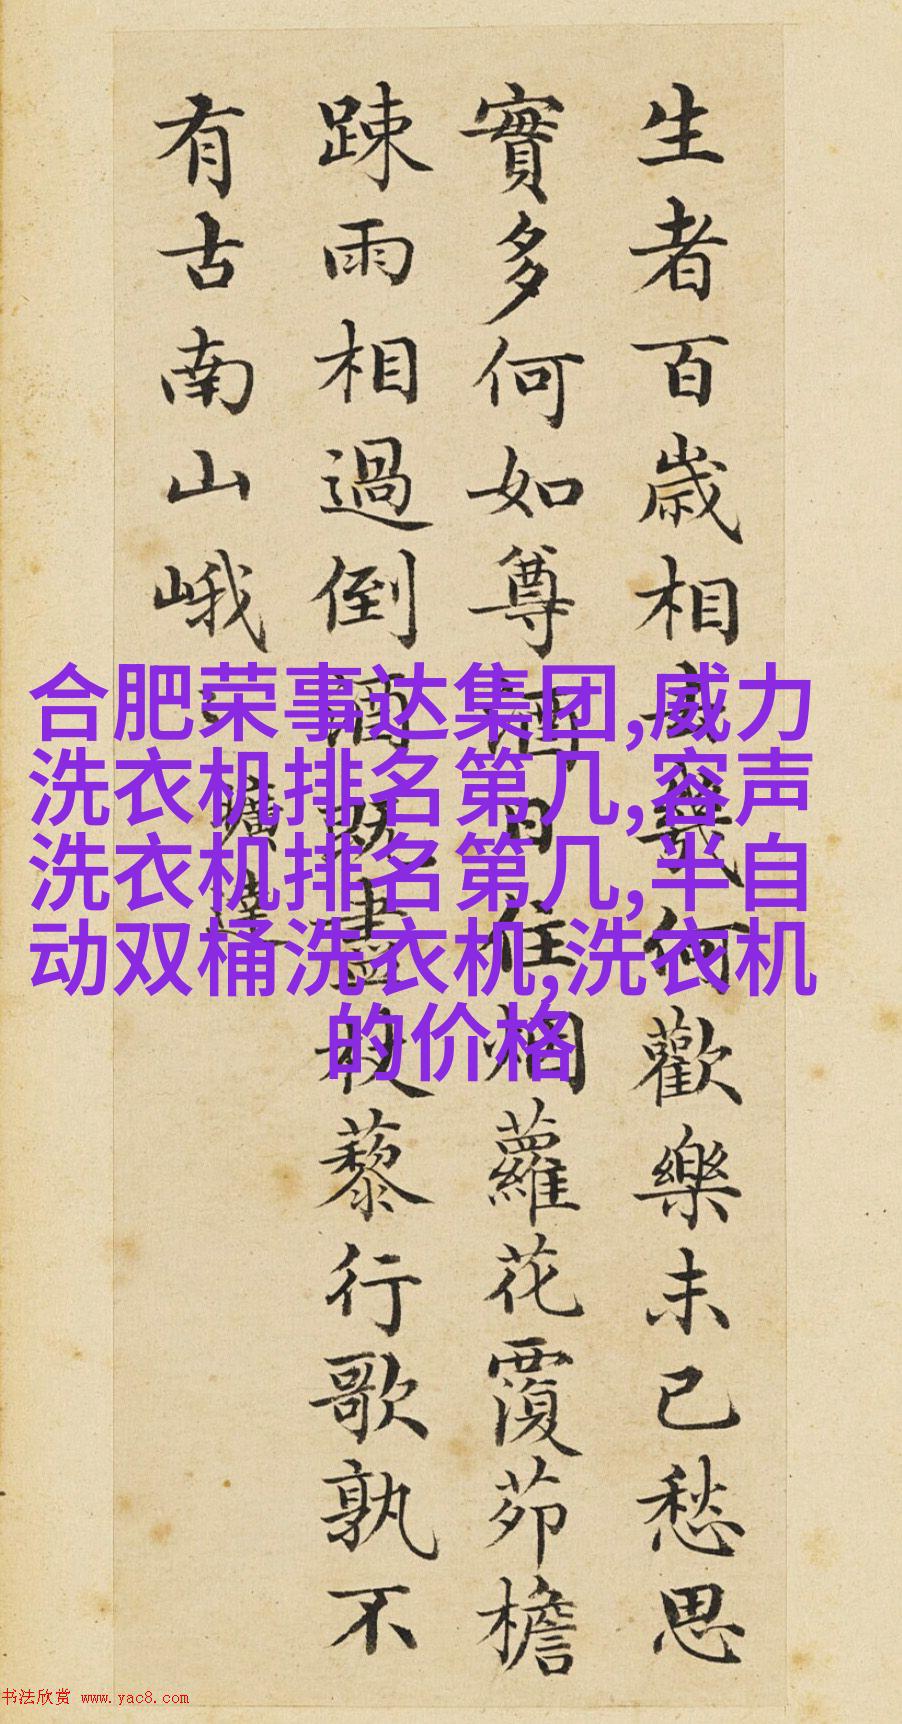 生者百歲相去幾何歡樂未已愁思
實多何如尊酒日住烟蘿花覆茆檐
踈雨相過倒酒既盡杖藜行歌孰不
有古南山峨〻
曠達
合肥荣事达集团,威力
洗衣机排名第几,容声
洗衣机排名第几,半自
动双桶洗衣机,洗衣机
的价格
书法欣赏 www.yac8.com